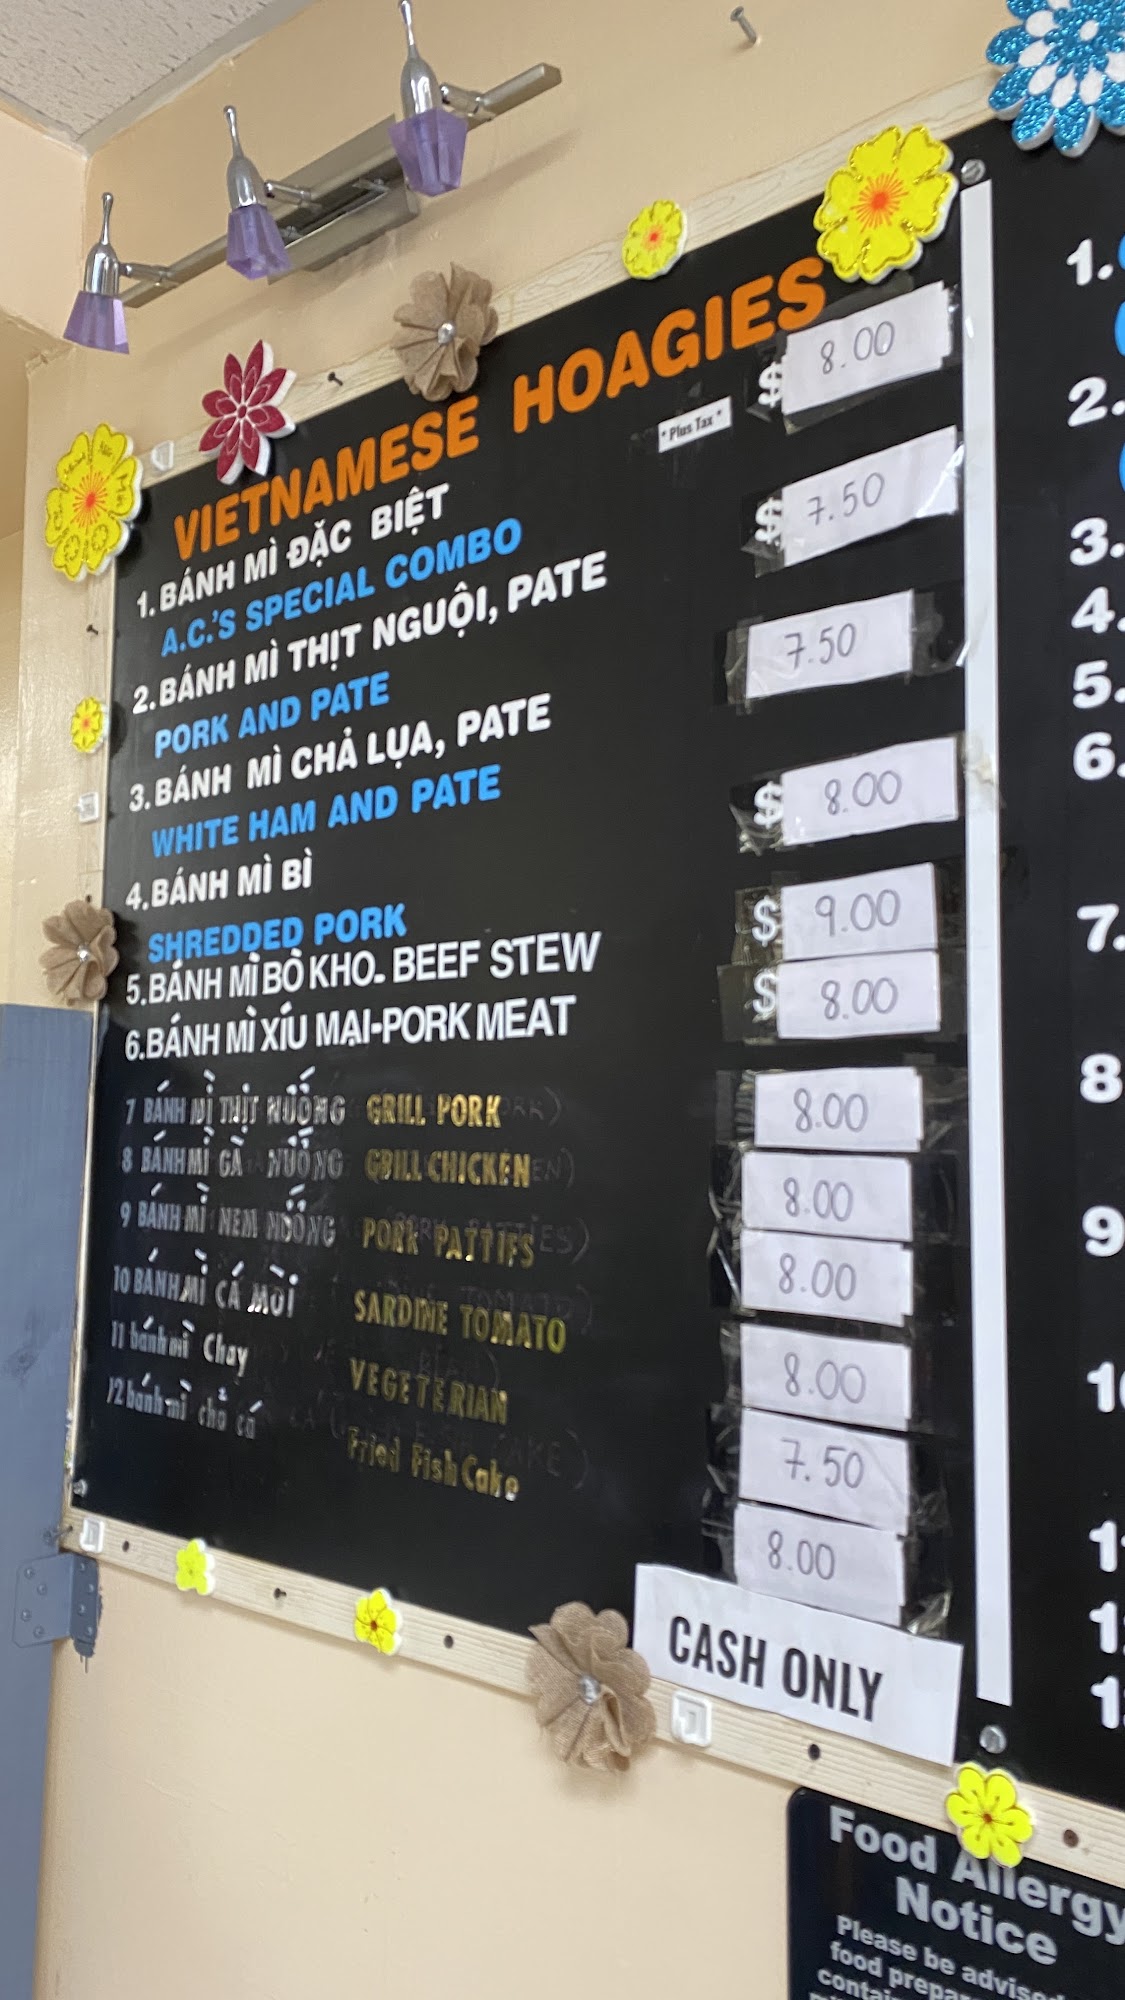 VIETNAMESE HOAGIES
* Plus Tax *
1. BÁNH MÌ ĐẶC BIỆT $ 8.00
A.C.'S SPECIAL COMBO
2. BÁNH MÌ THỊT NGUỘI, PATE $ 7.50
PORK AND PATE
3. BÁNH MÌ CHẢ LỤA, PATE 7.50
WHITE HAM AND PATE
4. BÁNH MÌ BÌ $ 8.00
SHREDDED PORK
5. BÁNH MÌ BÒ KHO. BEEF STEW $ 9.00
6. BÁNH MÌ XÍU MẠI-PORK MEAT $ 8.00
7 BÁNH MÌ THỊT NUỐNG GRILL PORK 8.00
8 BÁNH MÌ GÀ NUỐNG GRILL CHICKEN 8.00
9 BÁNH MÌ NEM NUỐNG PORK PATTIES 8.00
10 BÁNH MÌ CÁ MÒI SARDINE TOMATO 8.00
11 bánh mì Chay VEGETERIAN 7.50
12 bánh mì chả cá Fried Fish Cake 8.00
CASH ONLY
1.
2.
3.
4.
5.
6.
7.
8
9
Food Allergy
Notice
Please be advised
food